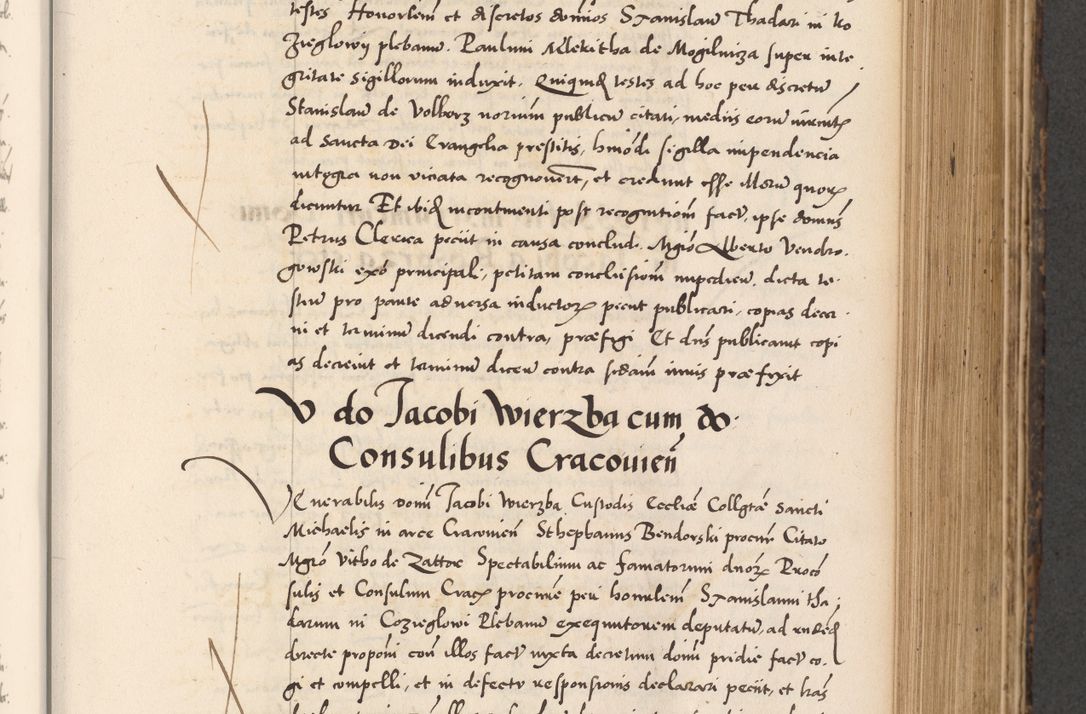 testes Honorlem et discretos domnos Stanislaw Thadari in Ko
zieglowij plebanu. Paulum Mlekitha de Mogilniza super inte
gritate sigillorum induxit. Quiquid testes ad hoc per discretu
Stanislau de Volborz notarium publicu citati, mediis eorum iuramentis
ad Sancta Dei Evangelia prestitis, hmodi sigilla impendencia
integra non viciata recognoverunt, et credunt esse illorum quorum
dicuntur Et ibid incontinenti post recognitiom fact, ipse domns
Petrus Clerica peciit in causa concludi. Mgro Alberto Vendro.
gowski exo principali, petitam conclusiom impedieu, dicta te
stiu pro parte adversa inductorum peciit publicari, copias decer
ni et terminu dicendi contra, præfigi Et dns publicavit copi
as decrevit et terminu dicen contra ad primam iuris præfixit
V do Jacobi Wierzba cum do
Consulibus Cracovien
Venerabilis Domi Jacobi Wierzba Custodis Eccliæ Collgtæ Sancti
Michaelis in arce Cracovien Sthephanus Bendorski procur Citato
Mgro Vitho de Zattor Spectabilium ac famatorum dnorum Proco
sulis et Consulum Crac procure per honulem Stanislaum tha
darum in Cozieglowi Plebanu exequutorem deputatu, ad
directe proponi con illos fact iuxta decretum domi pridie fact co
gi et compelli, et in defectu responsionis declarari peciit, et hras